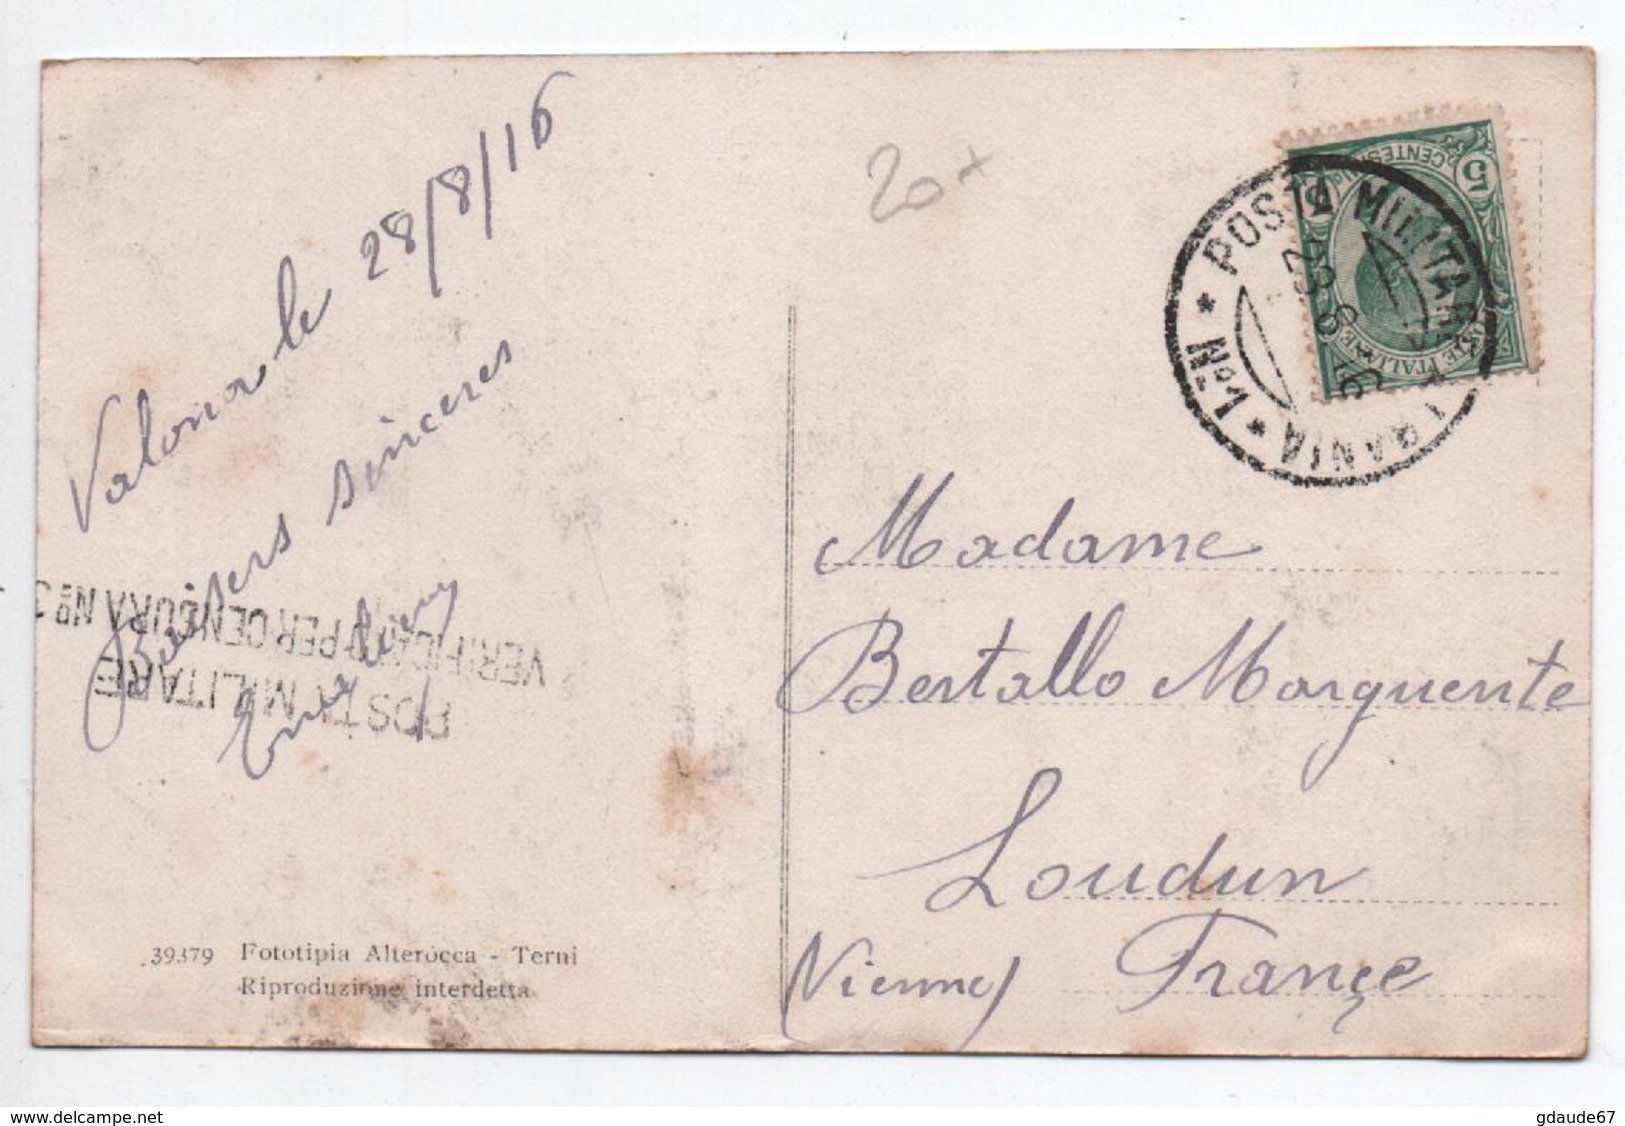 Valona le 28/8/16
Baisers sincères
20+
5 CENTESIMI 5
POSTE ITALIANE
* POSTA MILITARE * ALBANIA * Nº 1
28 8 16
POSTA MILITARE
VERIFICATO PER CENSURA Nº 3
Madame
Bertallo Marguerite
Loudun
(Vienne) Françe
39379 Fototipia Alterocca - Terni
Riproduzione interdetta
www.delcampe.net
gdaude67